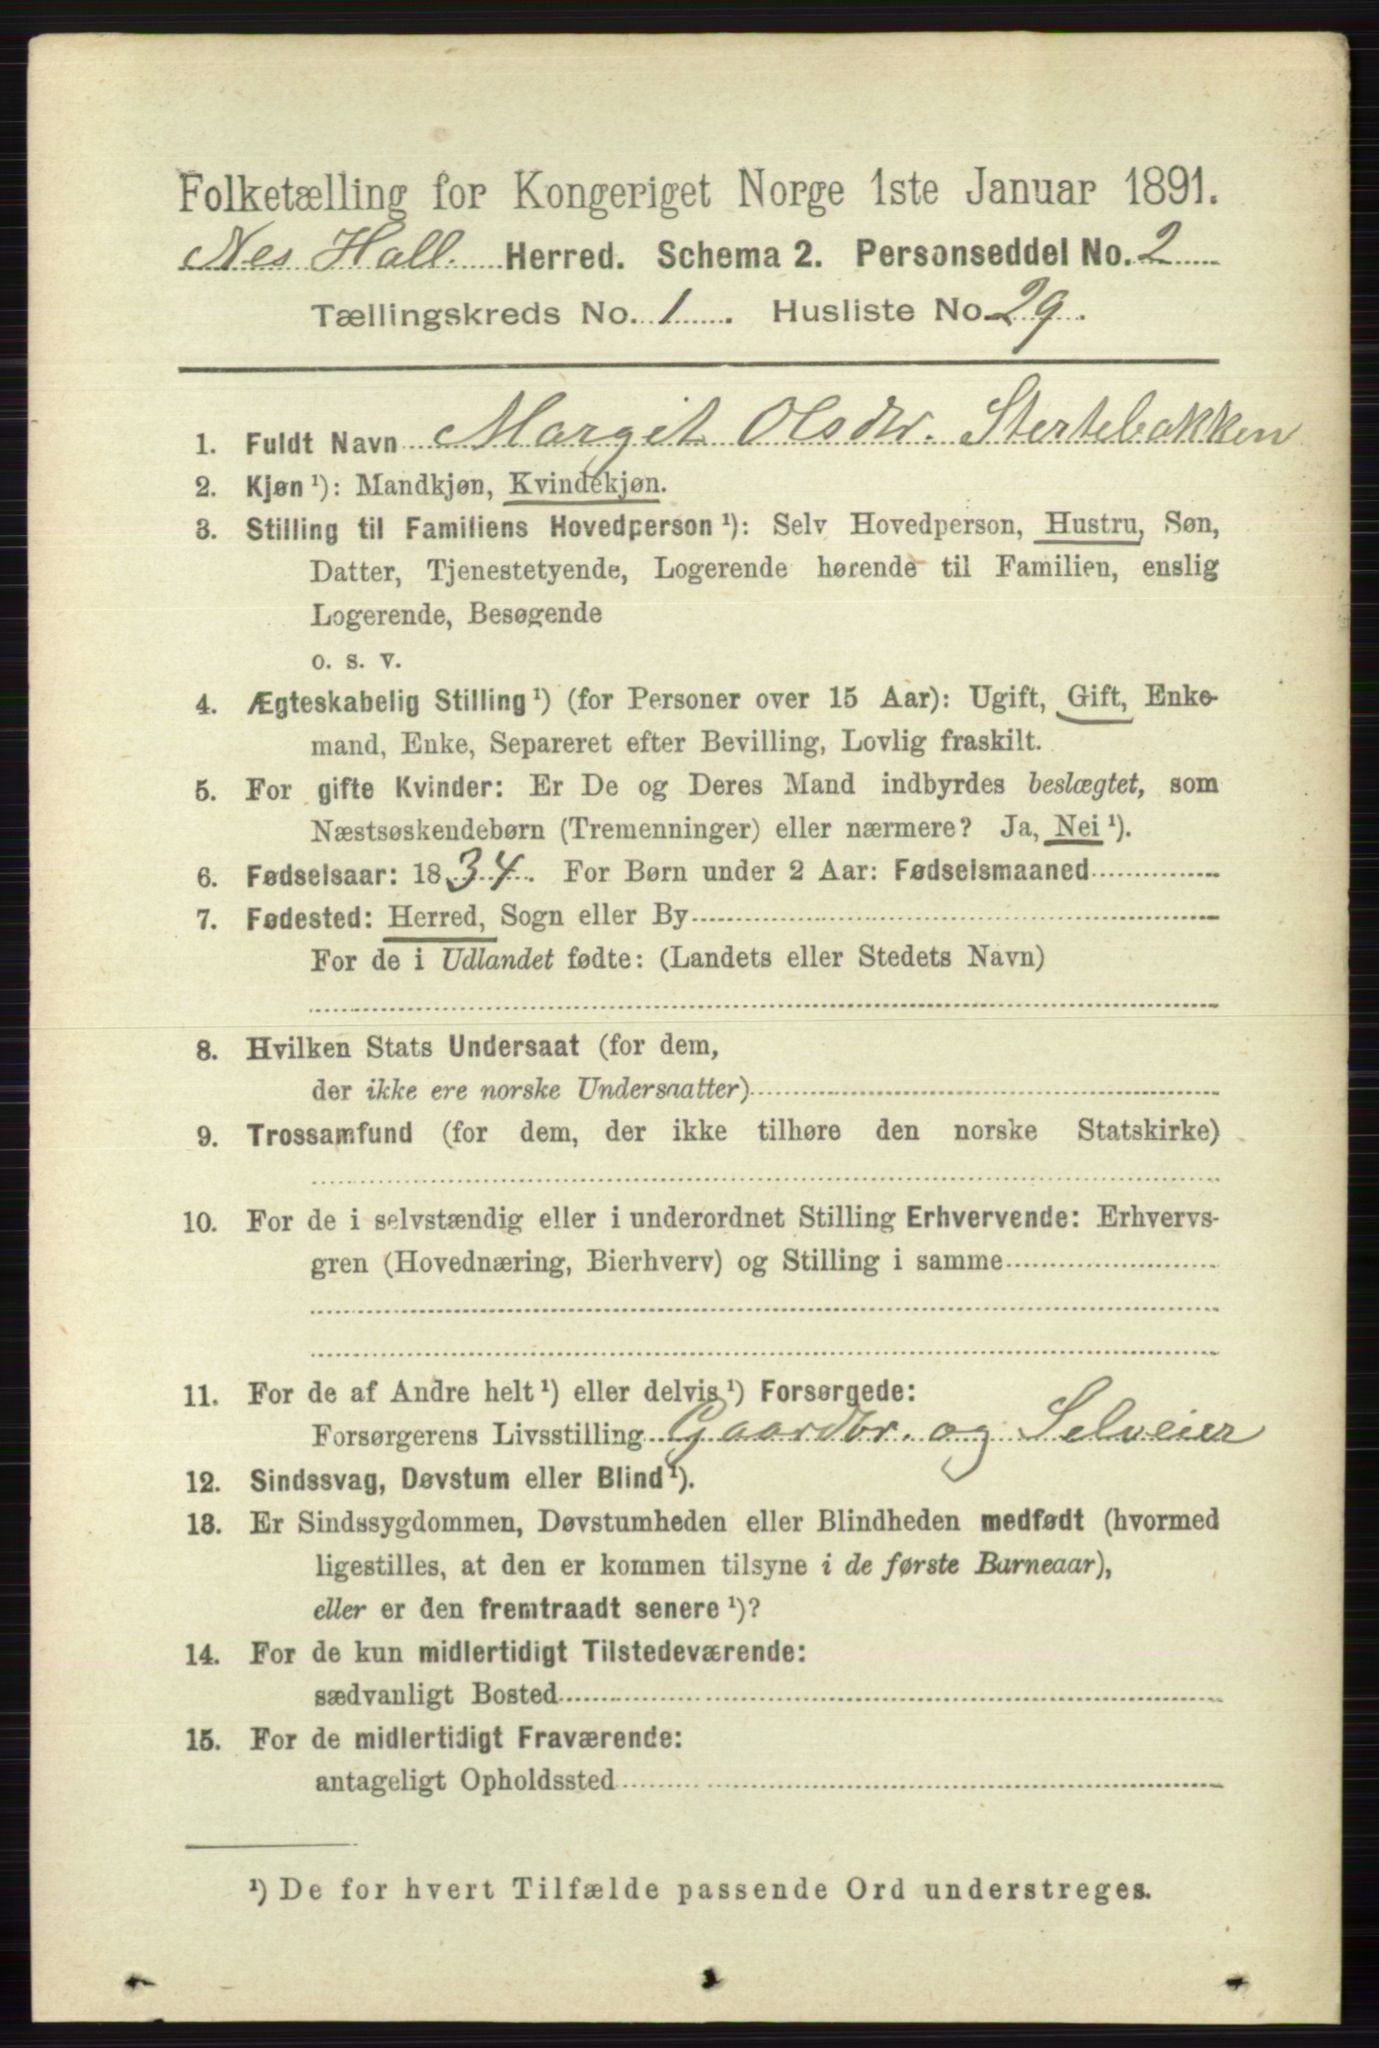 Folketælling for Kongeriget Norge 1ste Januar 1891.
Nes Hall. Herred. Schema 2. Personseddel No. 2
Tællingskreds No. 1. Husliste No. 29.
1. Fuldt Navn Margit Olsdtr. Stertebakken
2. Kjøn ¹): Mandkjøn, Kvindekjøn.
3. Stilling til Familiens Hovedperson ¹): Selv Hovedperson, Hustru, Søn,
Datter, Tjenestetyende, Logerende hørende til Familien, enslig
Logerende, Besøgende
o. s. v.
4. Ægteskabelig Stilling ¹) (for Personer over 15 Aar): Ugift, Gift, Enke-
mand, Enke, Separeret efter Bevilling, Lovlig fraskilt.
5. For gifte Kvinder: Er De og Deres Mand indbyrdes beslægtet, som
Næstsøskendebørn (Tremenninger) eller nærmere? Ja, Nei ¹).
6. Fødselsaar: 1834. For Børn under 2 Aar: Fødselsmaaned
7. Fødested: Herred, Sogn eller By
For de i Udlandet fødte: (Landets eller Stedets Navn)
8. Hvilken Stats Undersaat (for dem,
der ikke ere norske Undersaatter)
9. Trossamfund (for dem, der ikke tilhøre den norske Statskirke)
10. For de i selvstændig eller i underordnet Stilling Erhvervende: Erhvervs-
gren (Hovednæring, Bierhverv) og Stilling i samme
11. For de af Andre helt ¹) eller delvis ¹) Forsørgede:
Forsørgerens Livsstilling Gaardbr. og Selveier
12. Sindssvag, Døvstum eller Blind ¹).
13. Er Sindssygdommen, Døvstumheden eller Blindheden medfødt (hvormed
ligestilles, at den er kommen tilsyne i de første Barneaar),
eller er den fremtraadt senere ¹)?
14. For de kun midlertidigt Tilstedeværende:
sædvanligt Bosted
15. For de midlertidigt Fraværende:
antageligt Opholdssted
¹) De for hvert Tilfælde passende Ord understreges.